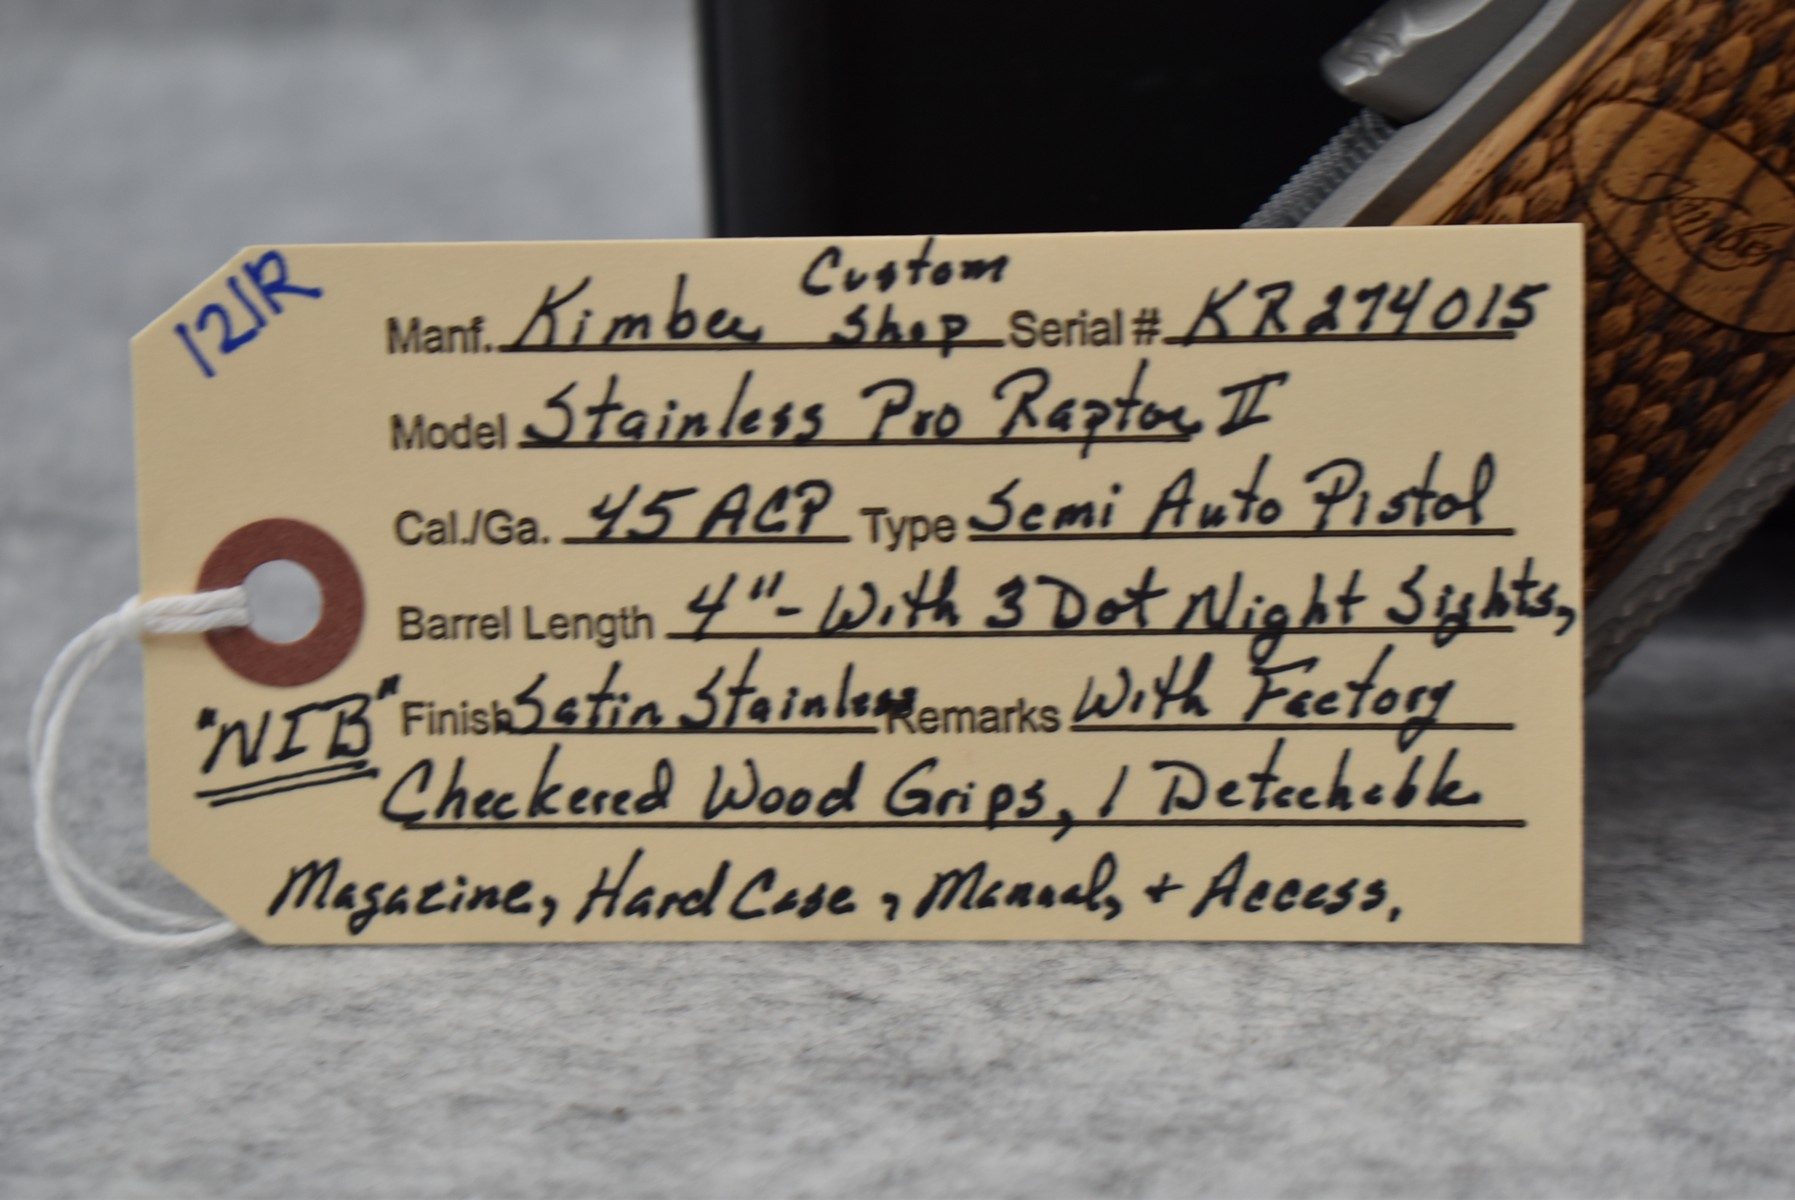 121R
Manf. Kimber Custom Shop Serial # KR274015
Model Stainless Pro Raptor II
Cal./Ga. 45 ACP Type Semi Auto Pistol
Barrel Length 4" - With 3 Dot Night Sights,
"NIB" Finish Satin Stainless Remarks With Factory
Checkered Wood Grips, 1 Detachable
Magazine, Hard Case, Manual, + Access.
Kimber